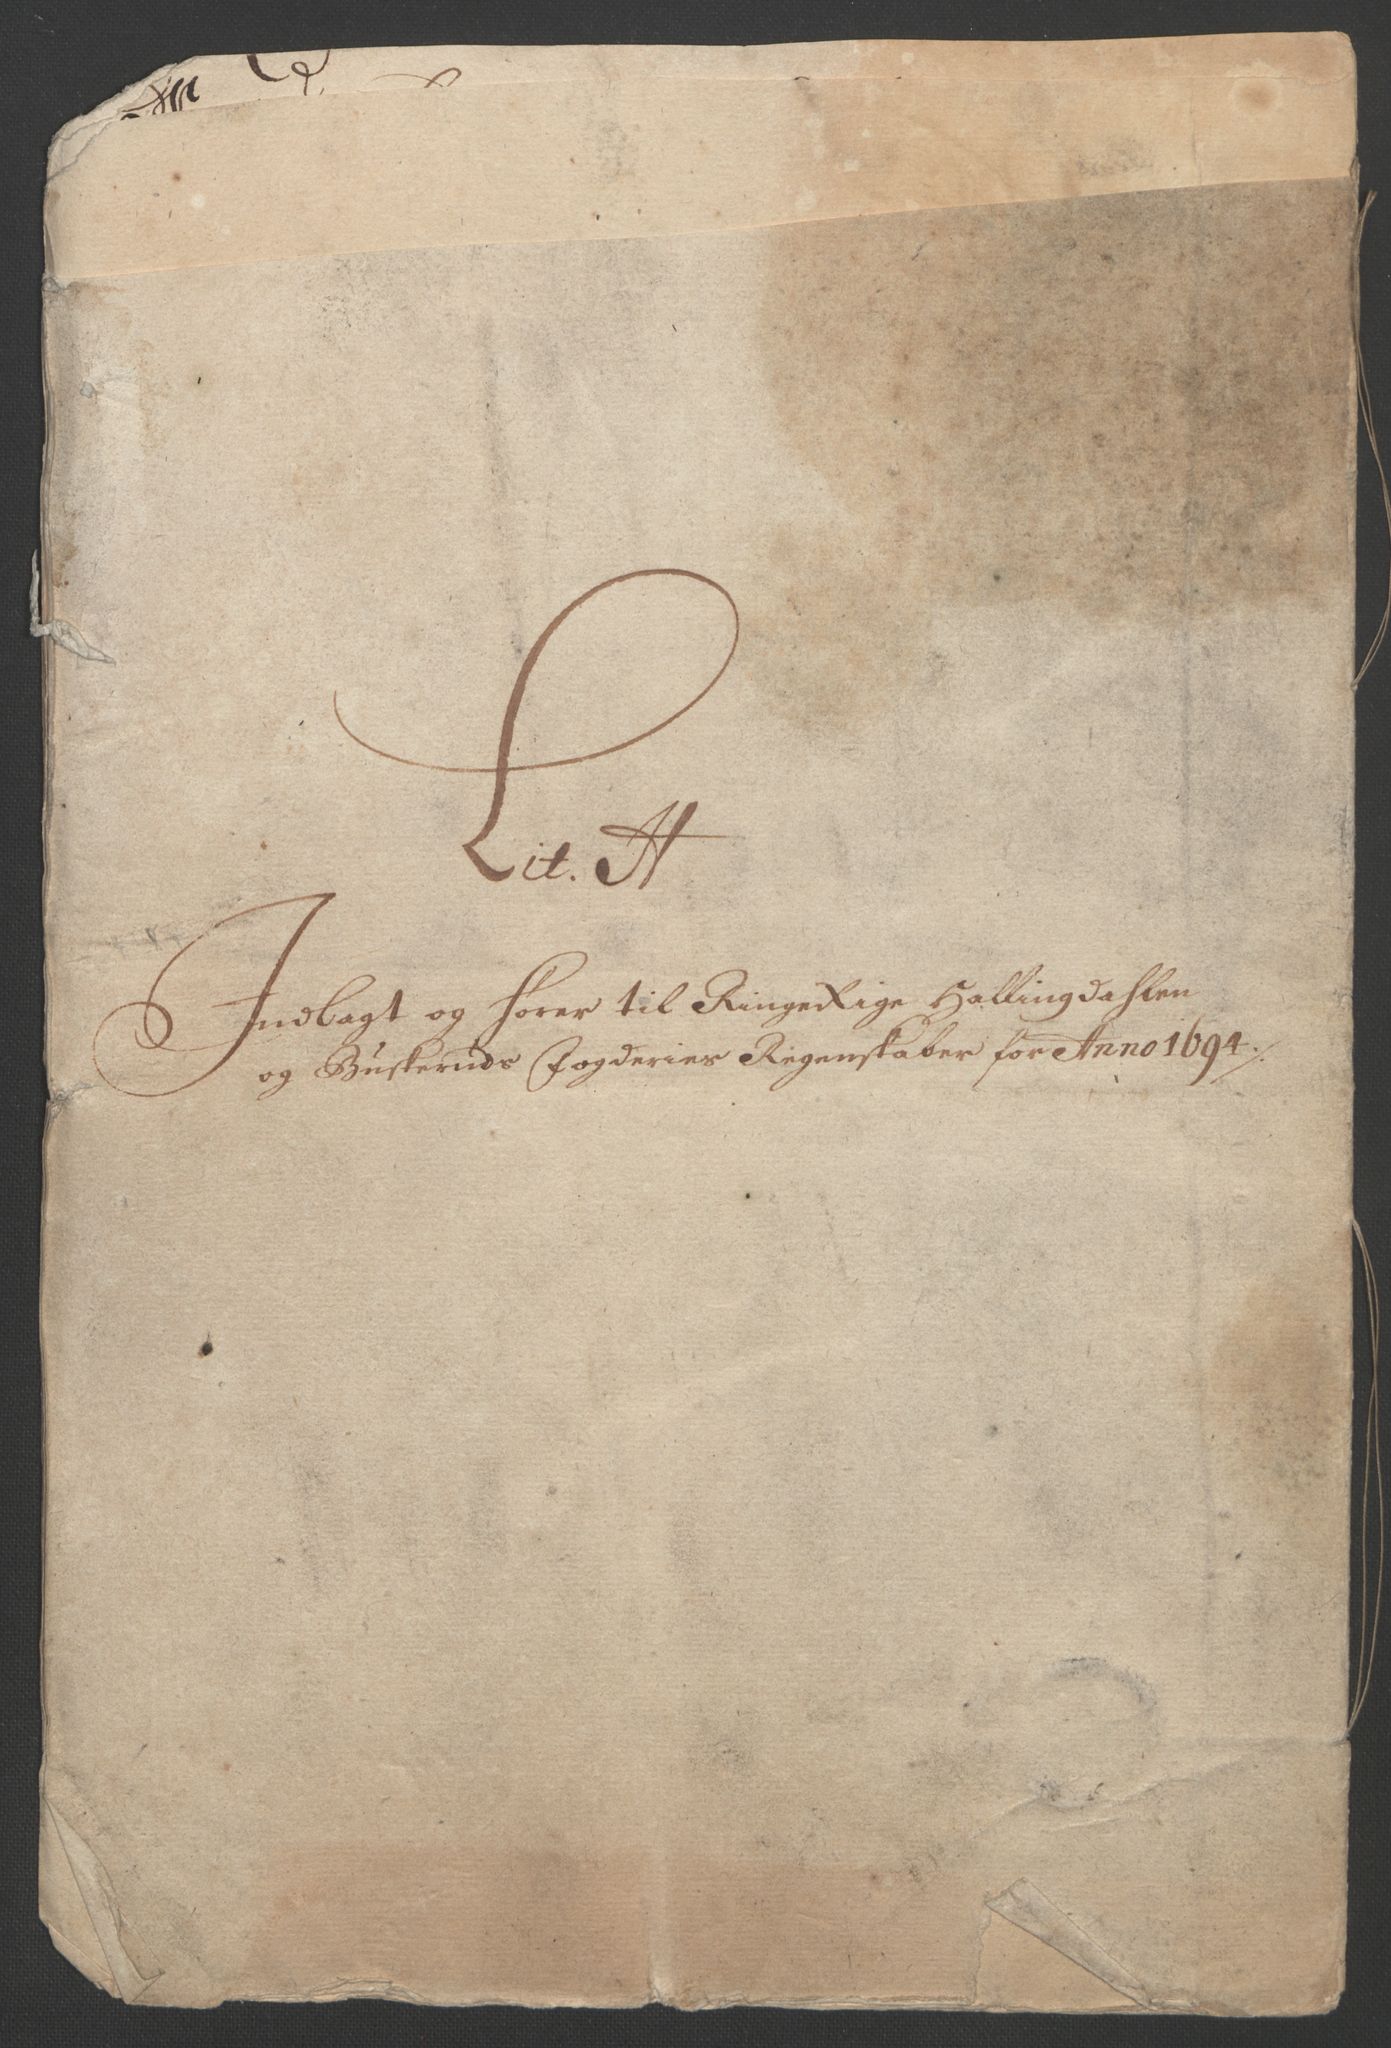 Lit. A
Indlagt og hører til Ringerige Hallingdahlen
og Buskeruds Fogderies Regenskaber for Anno 1694.